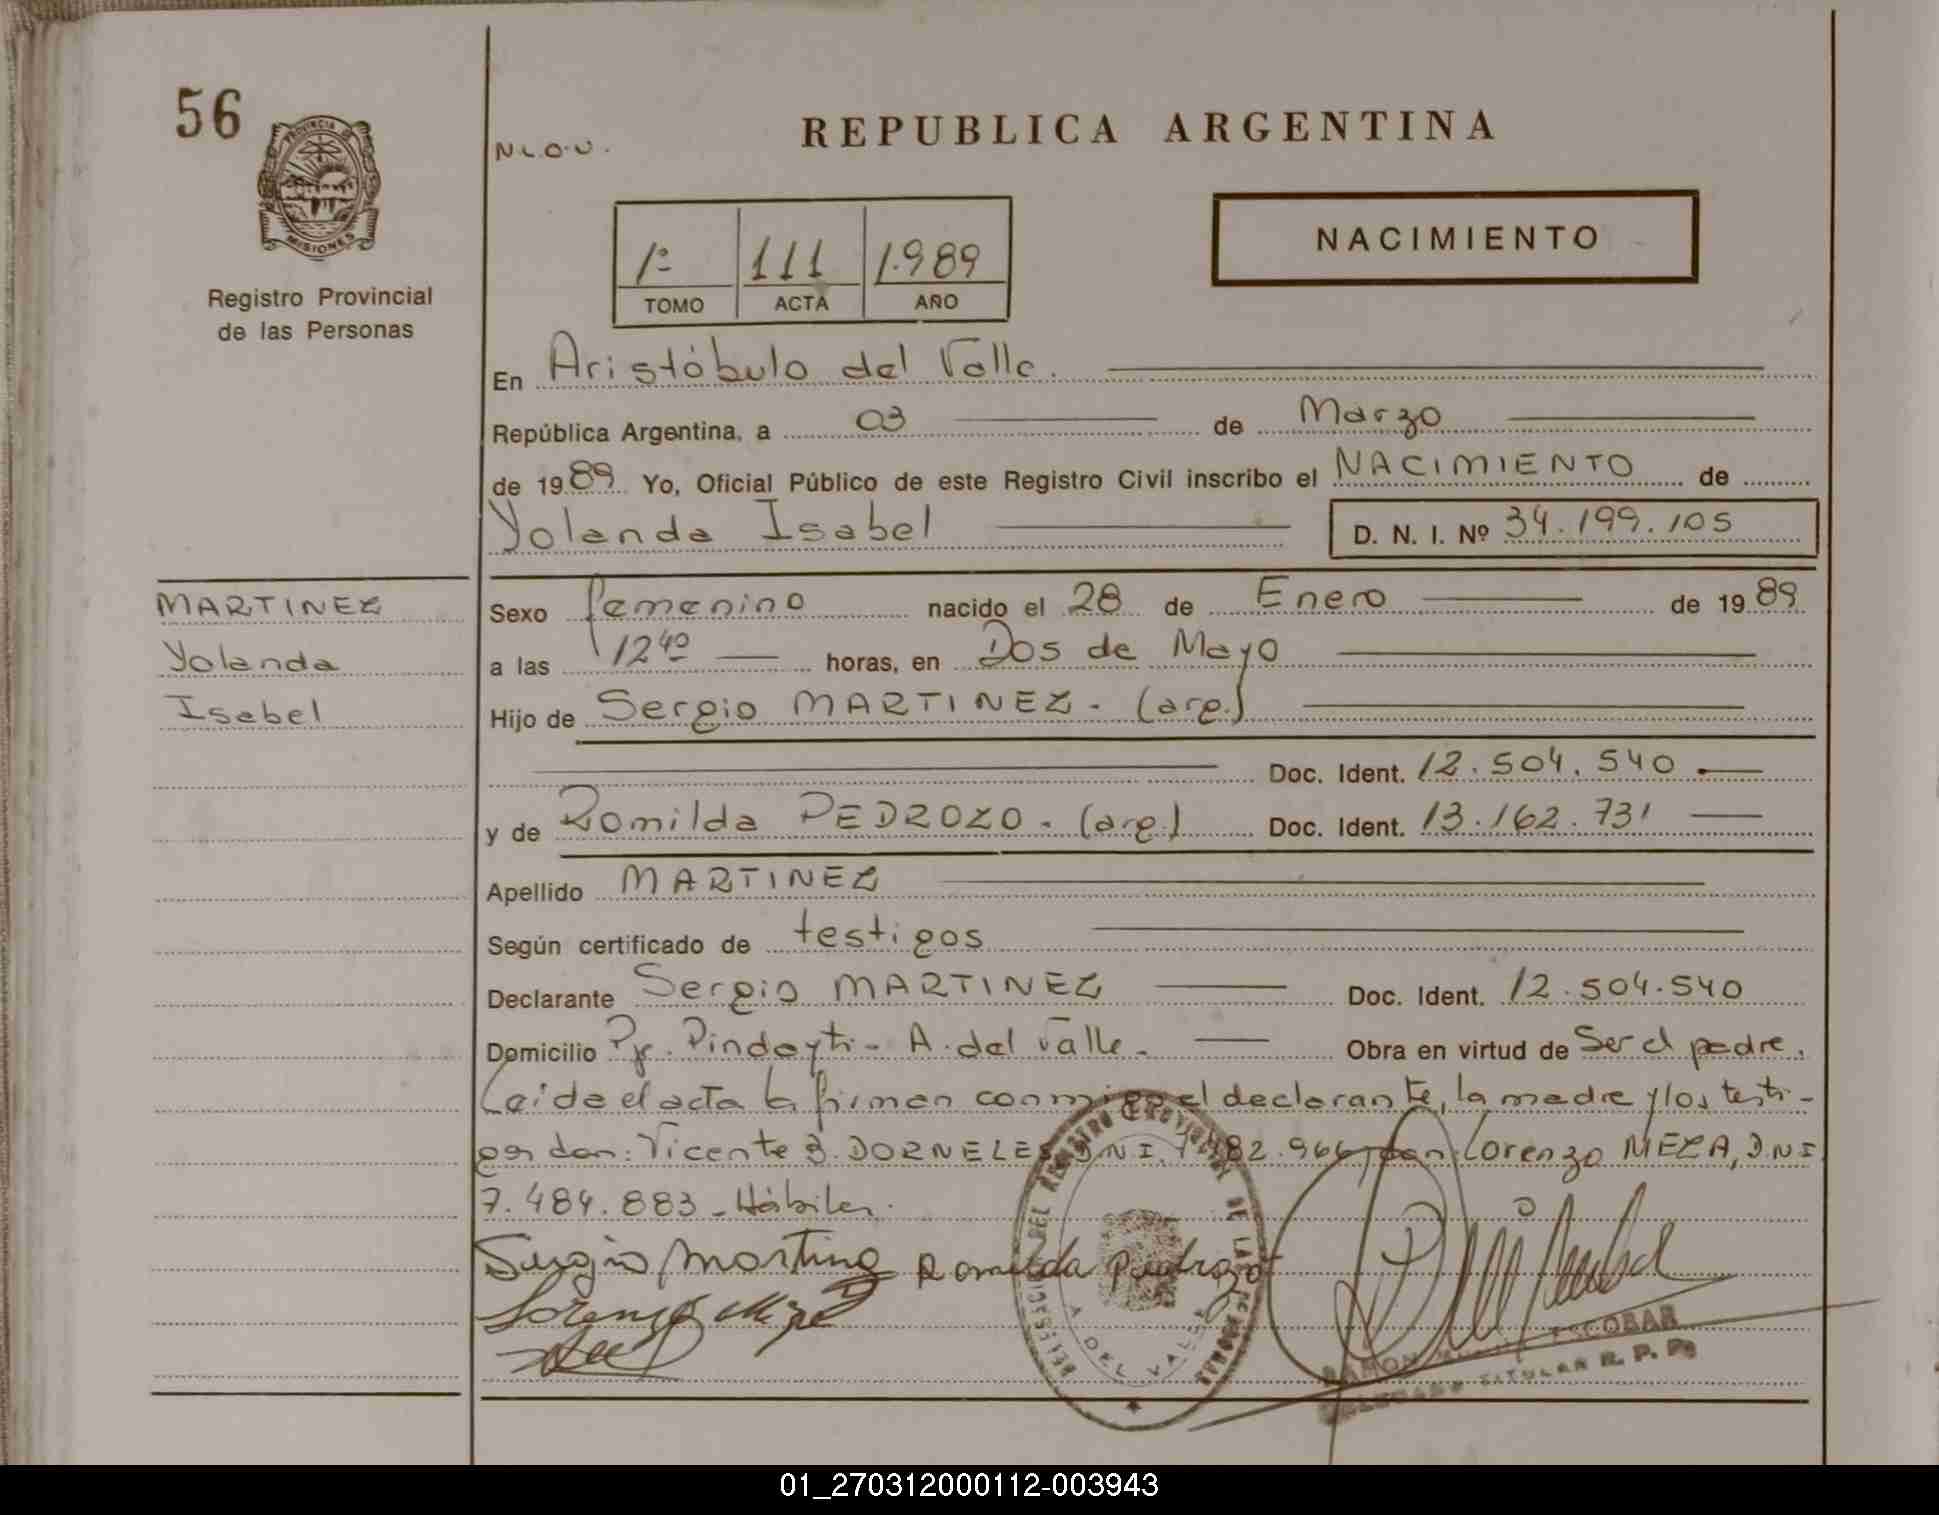 56
PROVINCIA DE
MISIONES
Registro Provincial
de las Personas
N.L.O.U.
REPUBLICA ARGENTINA
1º 111 1.989
TOMO ACTA AÑO
NACIMIENTO
En Aristóbulo del Valle.
República Argentina, a 03 de Marzo
de 1989 Yo, Oficial Público de este Registro Civil inscribo el NACIMIENTO de
Yolanda Isabel D. N. I. Nº 34.199.105
MARTINEZ
Yolanda
Isabel
Sexo femenino nacido el 28 de Enero de 1989
a las 12⁴⁰ horas, en Dos de Mayo
Hijo de Sergio MARTINEZ. (arg.)
Doc. Ident. 12.504.540
y de Romilda PEDROZO. (arg.) Doc. Ident. 13.162.731
Apellido MARTINEZ
Según certificado de testigos
Declarante Sergio MARTINEZ Doc. Ident. 12.504.540
Domicilio Pje. Pindayti - A. del Valle. Obra en virtud de Ser el padre.
Leída el acta la firman conmigo el declarante, la madre y los testi-
gos don: Vicente B. DORNELES, D.N.I. 82.966, don Lorenzo MEZA, D.N.I
7.484.883 - Hábiles.
Sergio Martinez Romilda Pedrozo
Lorenzo Meza
REGISTRO PROVINCIAL DE LAS PERSONAS
A. DEL VALLE
RAMON ESCOBAR
DELEGADO TITULAR R. P. P.
01_270312000112-003943